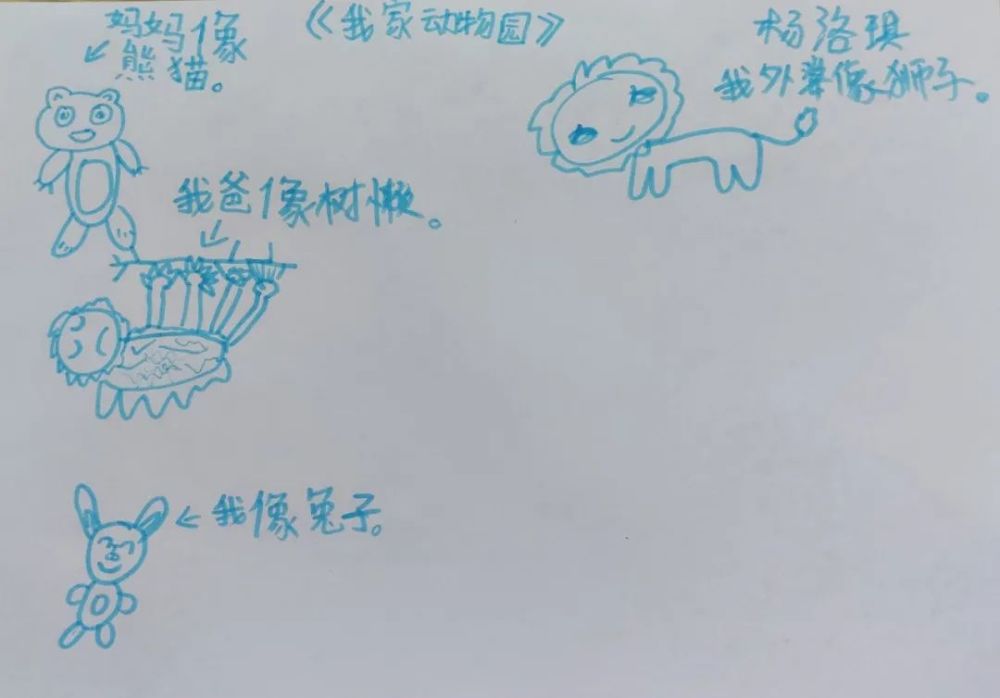 《我家动物园》
杨洛琪
妈妈像
熊猫。
我外像狮子。
我爸像树懒。
我像兔子。